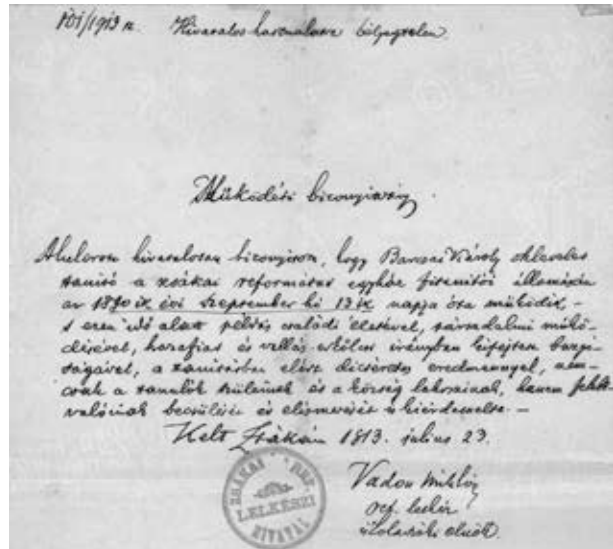 101/1913 n. Hivatalos használatra bélyegtelen
Működési bizonyítvány.
Alulírott hivatalosan bizonyítom, hogy Barcsai Károly okleveles
tanító a zsákai református egyház fitanítói állomásán
az 1890 ik évi Szeptember hó 13 ik napja óta működik, –
s ezen idő alatt példás családi életével, társadalmi műkö-
désével, hazafias és vallás erkölcsi irányban kifejtett buzgó-
ságával, a tanításban elért dicséretes eredménnyel, nem-
csak a tanulók szüleinek és a község lakosainak, hanem felebb-
valóinak becsülését és elismerését is kiérdemelte. –
Kelt Zsákán 1913. július 23.
ZSÁKAI REF.
LELKÉSZI
HIVATAL
Vadon Miklós
ref. lelkész
iskolaszéki elnök.